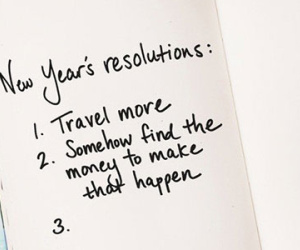 New Year's resolutions:
1. Travel more
2. Somehow find the
money to make
that happen
3.